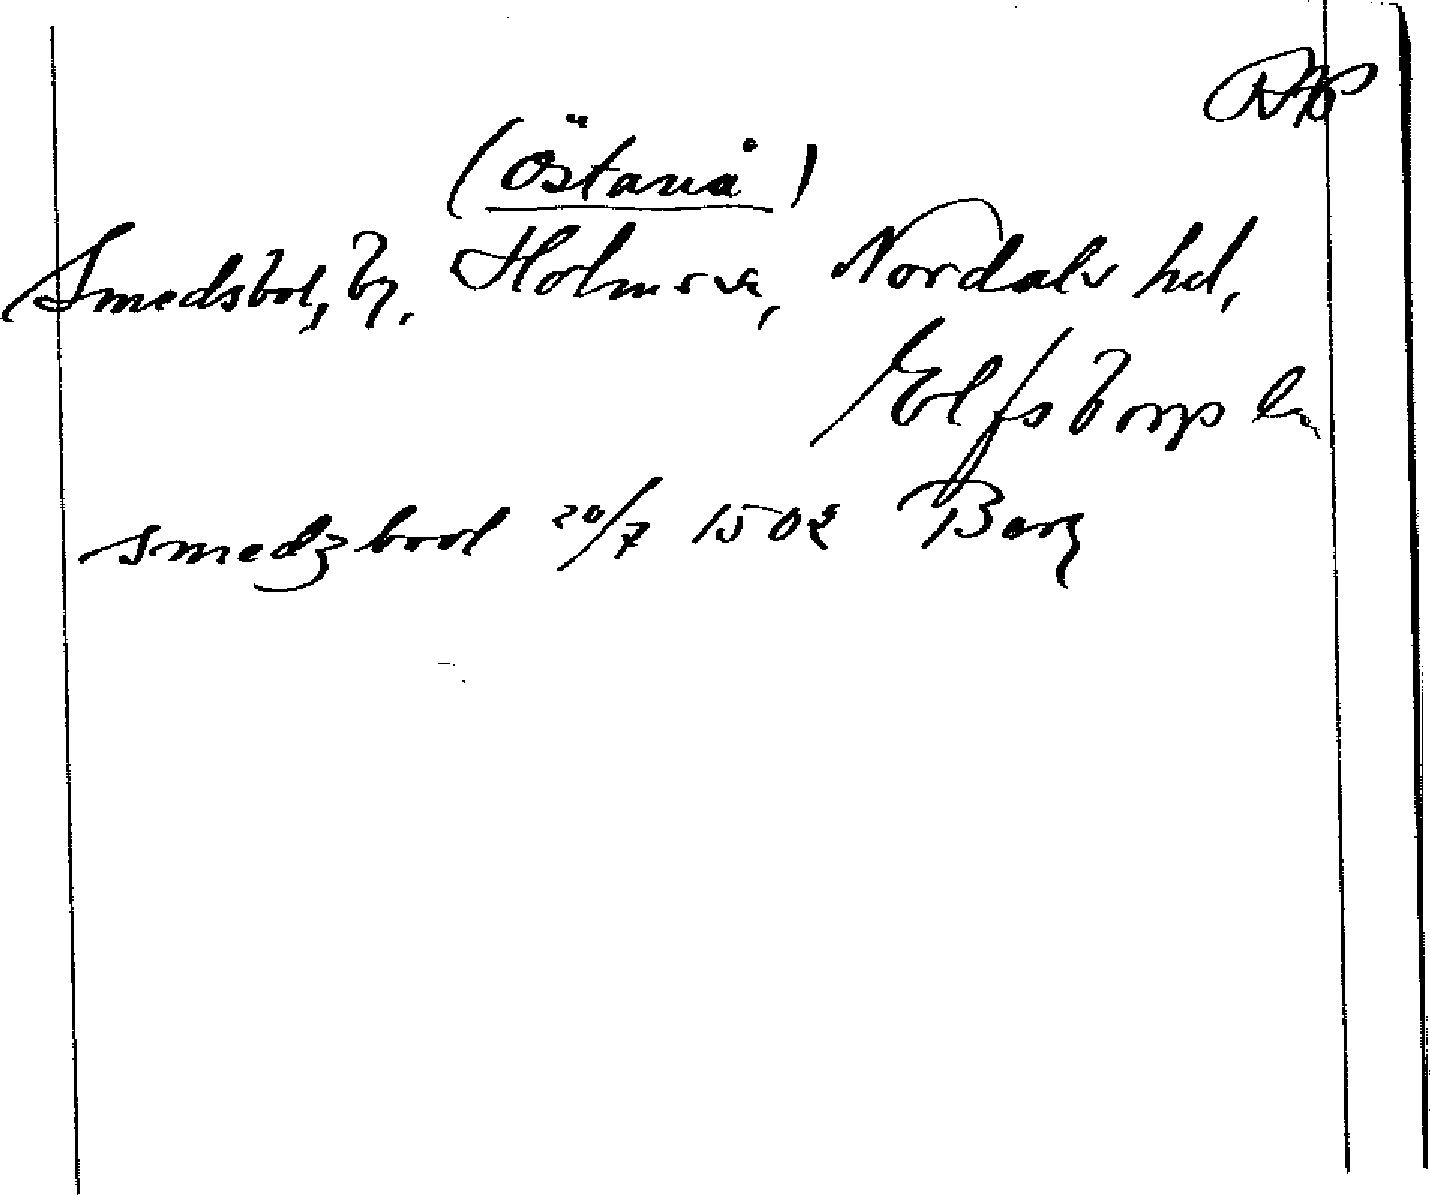 (Östanå)
Smedsbol, by, Holms sn, Nordals hd,
Elfsborgs ln
smedzbool 20/7 1502 Borg